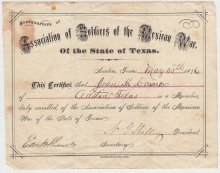 Headquarters
Association of Soldiers of the Mexican War.
Of the State of Texas.
Austin, Texas, May 30th 1876
This Certifies that John H. Connor
of Austin Texas is a Member
duly enrolled of the Association of Soldiers of the Mexican
War of the State of Texas.
President
Secretary